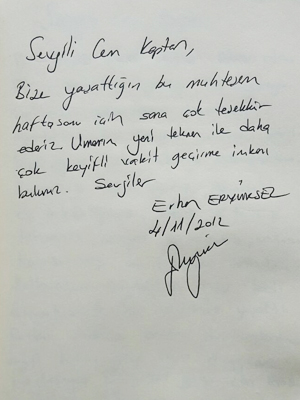 Sevgili Cem Kaptan,
Bize yaşattığın bu muhteşem
haftasonu için sana çok teşekkür
ederiz. Umarım yeni teknen ile daha
çok keyifli vakit geçirme imkanı
buluruz. Sevgiler
Erhan ERYÜKSEL
4/11/2012